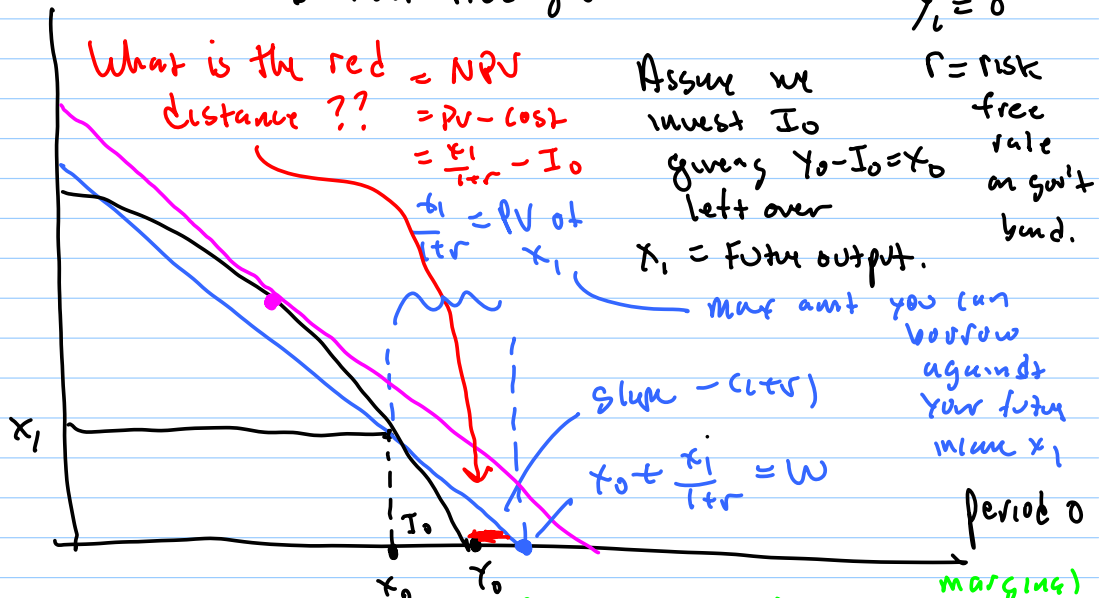 y₁ = 0
What is the red = NPV
distance ?? = PV - cost
= x₁/(1+r) - I₀
x₁/(1+r) = PV of
x₁
Assume we
invest I₀
giveng Y₀-I₀=X₀
left over
X₁ = Future output.
r = risk
free
rate
on gov't
bond.
max amt you can
borrow
against
your future
income x₁
slope -(1+r)
x₀ + x₁/(1+r) = W
X₁
I₀
x₀
Y₀
period 0
marginal